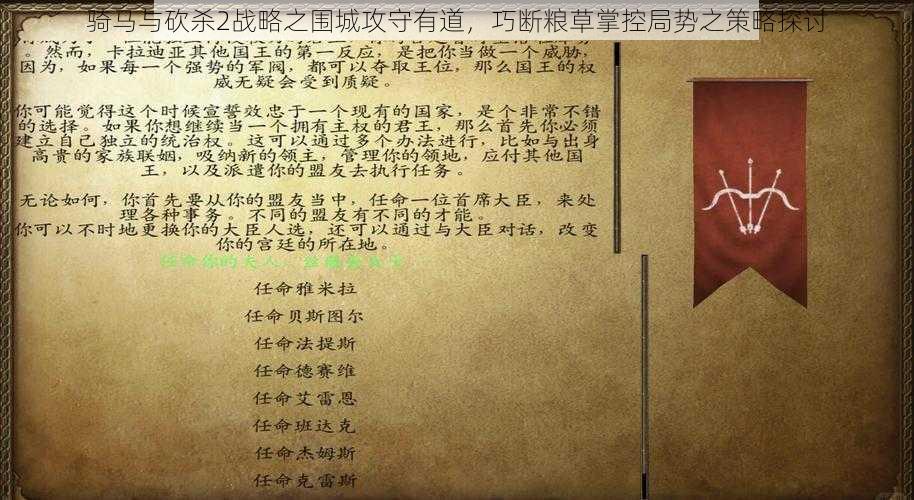 骑马与砍杀2战略之围城攻守有道，巧断粮草掌控局势之策略探讨
。然而，卡拉迪亚其他国王的第一反应，是把你当做一个威胁，
因为，如果每一个强势的军阀，都可以夺取王位，那么国王的权
威无疑会受到质疑。
你可能觉得这个时候宣誓效忠于一个现有的国家，是个非常不错
的选择。如果你想继续当一个拥有主权的君王，那么首先你必须
建立自己独立的统治权。这可以通过多个办法进行，比如与出身
高贵的家族联姻，吸纳新的领主，管理你的领地，应付其他国
王，以及派遣你的盟友去执行任务。
无论如何，你首先要从你的盟友当中，任命一位首席大臣，来处
理各种事务。不同的盟友有不同的才能。
你可以不时地更换你的大臣人选，还可以通过与大臣对话，改变
你的宫廷的所在地。
任命你的夫人，
任命雅米拉
任命贝斯图尔
任命法提斯
任命德赛维
任命艾雷恩
任命班达克
任命杰姆斯
任命克雷斯